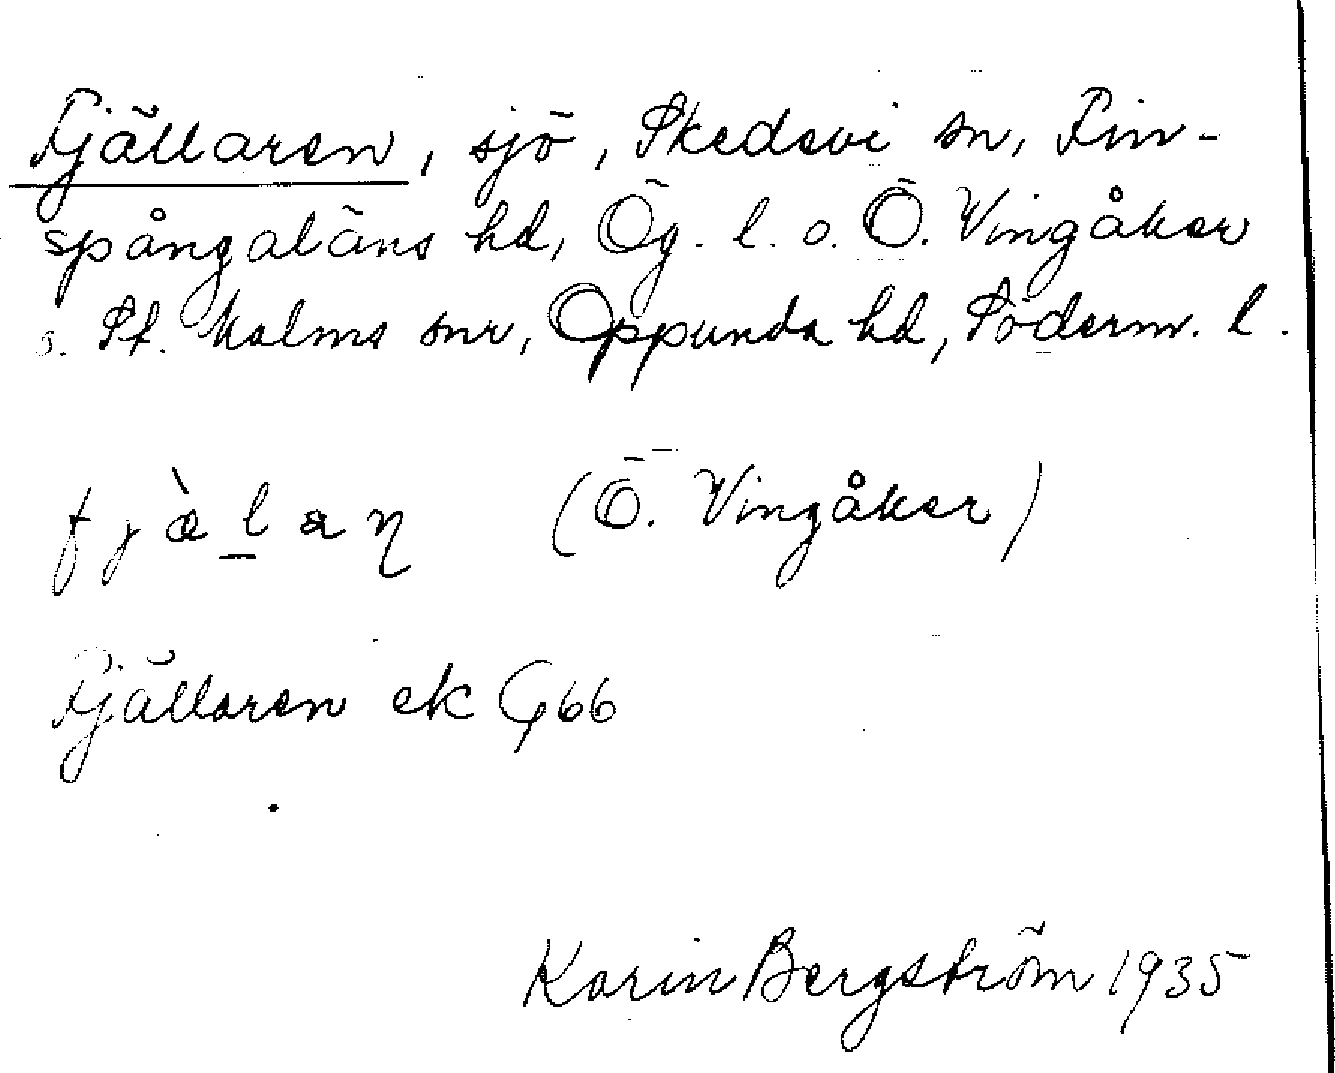 Fjällaren, sjö, Skedevi sn, Fin-
spångaläns hd, Ög. l. o. Ö. Vingåker
o. St. Malms snr, Oppunda hd, Söderm. l.
fjæ̀lan (Ö. Vingåker)
Fjällaren ek G66
Karin Bergström 1935